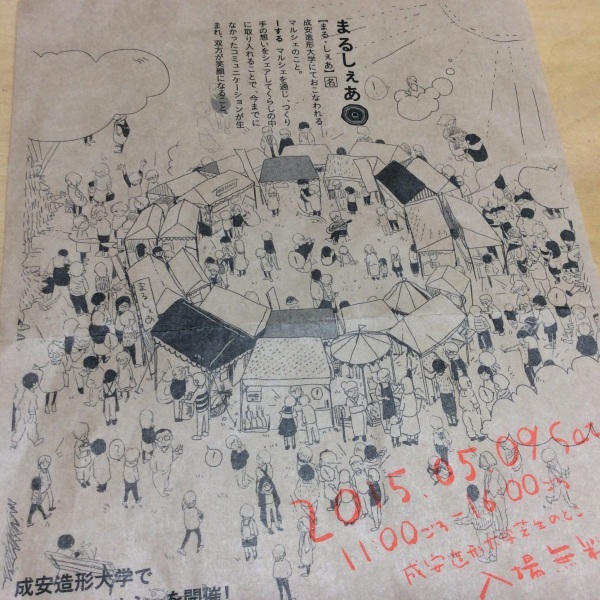 まるしぇあ
【まる・しぇあ】名
成安造形大学にておこなわれる
マルシェのこと。
ーする マルシェを通じ、つくり
手の想いをシェアしてくらしの中
に取り入れることで、今までに
なかったコミュニケーションが生
まれ、双方が笑顔になること。
2015.05.09 Sat
11:00ごろ-16:00ごろ
成安造形大学芝生のとこ
入場無料
成安造形大学で
を開催!